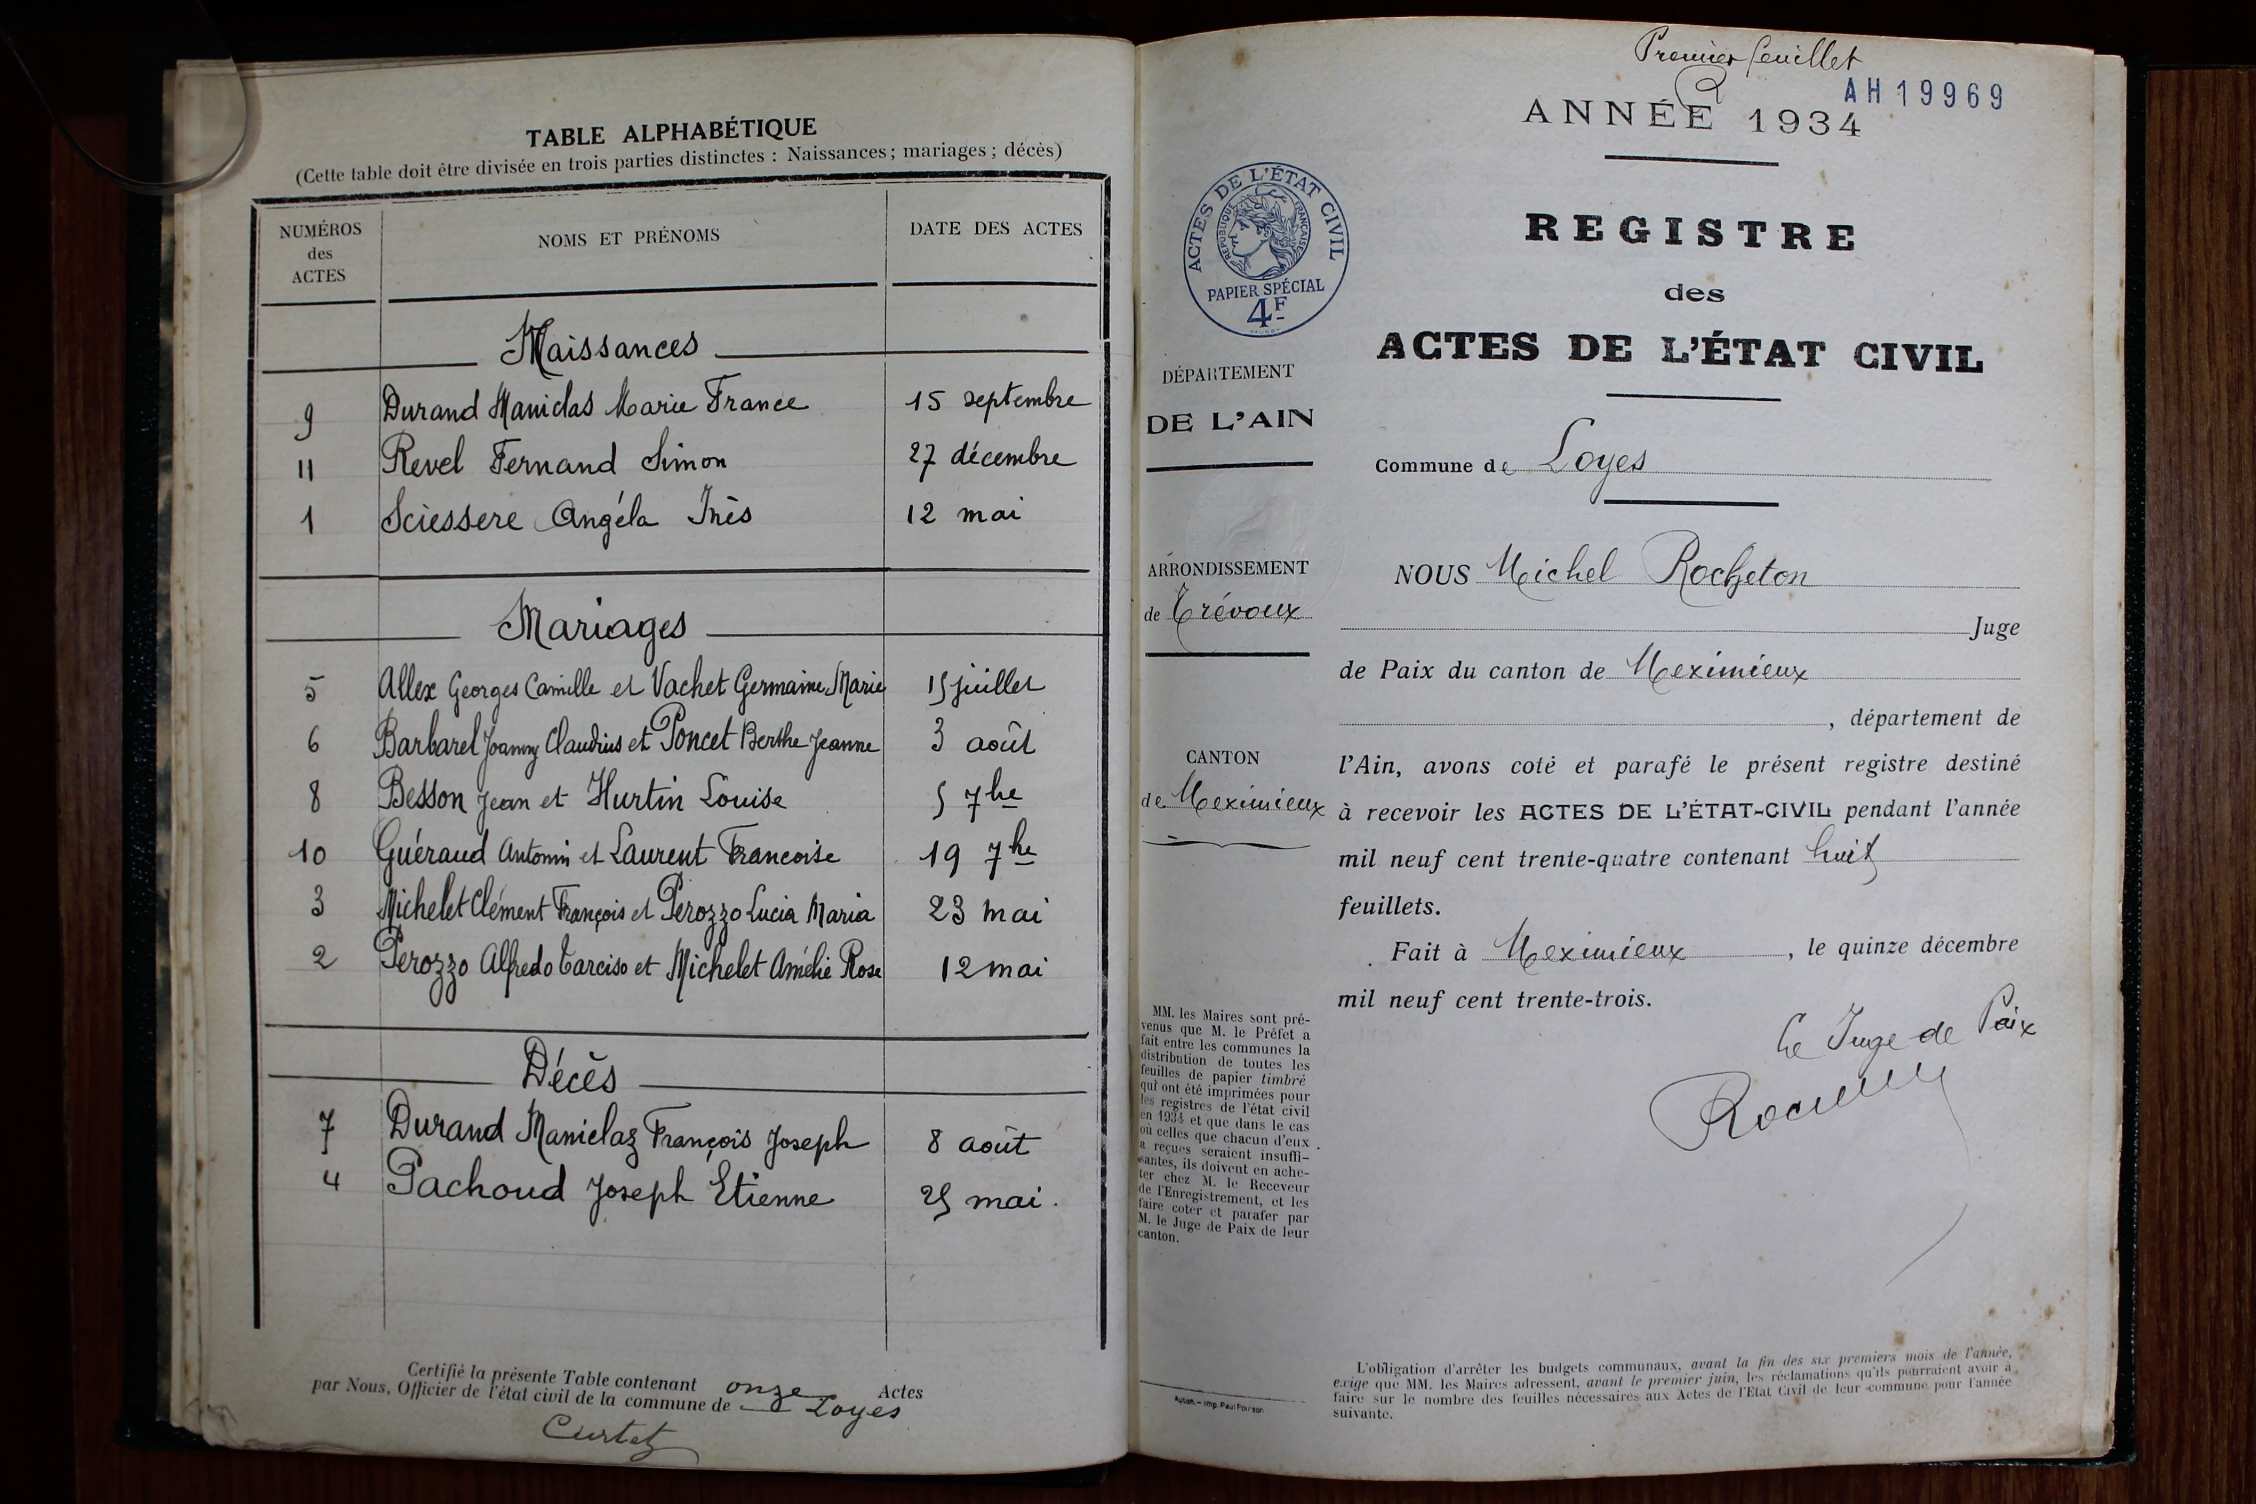 TABLE ALPHABÉTIQUE
(Cette table doit être divisée en trois parties distinctes : Naissances ; mariages ; décès)
NUMÉROS des ACTES
NOMS ET PRÉNOMS
DATE DES ACTES
Naissances
9 Durand Maniclas Marie France 15 septembre
11 Revel Fernand Simon 27 décembre
1 Sciessere Angéla Inès 12 mai
Mariages
5 Allex Georges Camille et Vachet Germaine Marie 15 juillet
6 Barbarel Joanny Claudius et Poncet Berthe Jeanne 3 août
8 Besson Jean et Hurtin Louise 5 7bre
10 Guéraud Antonin et Laurent Francoise 19 7bre
3 Michelet Clément François et Perozzo Lucia Maria 23 mai
2 Perozzo Alfredo Tarciso et Michelet Amélie Rose 12 mai
Décès
7 Durand Maniclaz François Joseph 8 août
4 Pachoud Joseph Etienne 25 mai.
Certifié la présente Table contenant onze Actes
par Nous, Officier de l'état civil de la commune de Loyes
Curtet
Premier feuillet
AH 19969
ANNÉE 1934
REGISTRE
des
ACTES DE L'ÉTAT CIVIL
ACTES DE L'ÉTAT CIVIL
RÉPUBLIQUE FRANÇAISE
PAPIER SPÉCIAL
4F
DÉPARTEMENT
DE L'AIN
ARRONDISSEMENT
de Trévoux
CANTON
de Meximieux
MM. les Maires sont pré-
venus que M. le Préfet a
fait entre les communes la
distribution de toutes les
feuilles de papier timbré
qui ont été imprimées pour
les registres de l'état civil
en 1934 et que dans le cas
où celles que chacun d'eux
a reçues seraient insuffi-
santes, ils doivent en ache-
ter chez M. le Receveur
de l'Enregistrement, et les
faire coter et parafer par
M. le Juge de Paix de leur
canton.
Commune de Loyes
NOUS Michel Rocheton
Juge
de Paix du canton de Meximieux
, département de
l'Ain, avons coté et parafé le présent registre destiné
à recevoir les ACTES DE L'ÉTAT-CIVIL pendant l'année
mil neuf cent trente-quatre contenant huit
feuillets.
Fait à Meximieux, le quinze décembre
mil neuf cent trente-trois.
Le Juge de Paix
L'obligation d'arrêter les budgets communaux, avant la fin des six premiers mois de l'année,
exige que MM. les Maires adressent, avant le premier juin, les réclamations qu'ils pourraient avoir à
faire sur le nombre des feuilles nécessaires aux Actes de l'Etat Civil de leur commune pour l'année
suivante.